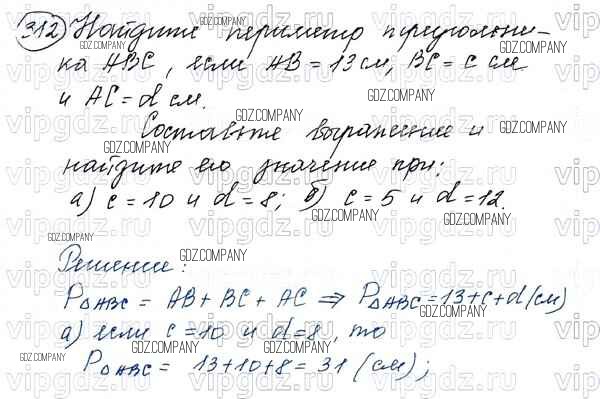 312 Найдите периметр треугольни-
ка ABC, если AB = 13 см, BC = c см
и AC = d см.
Составьте выражение и
найдите его значение при:
а) c = 10 и d = 8; б) c = 5 и d = 12.
Решение:
P△ABC = AB + BC + AC ⇒ P△ABC = 13 + c + d (см)
а) если c = 10 и d = 8, то
P△ABC = 13 + 10 + 8 = 31 (см);